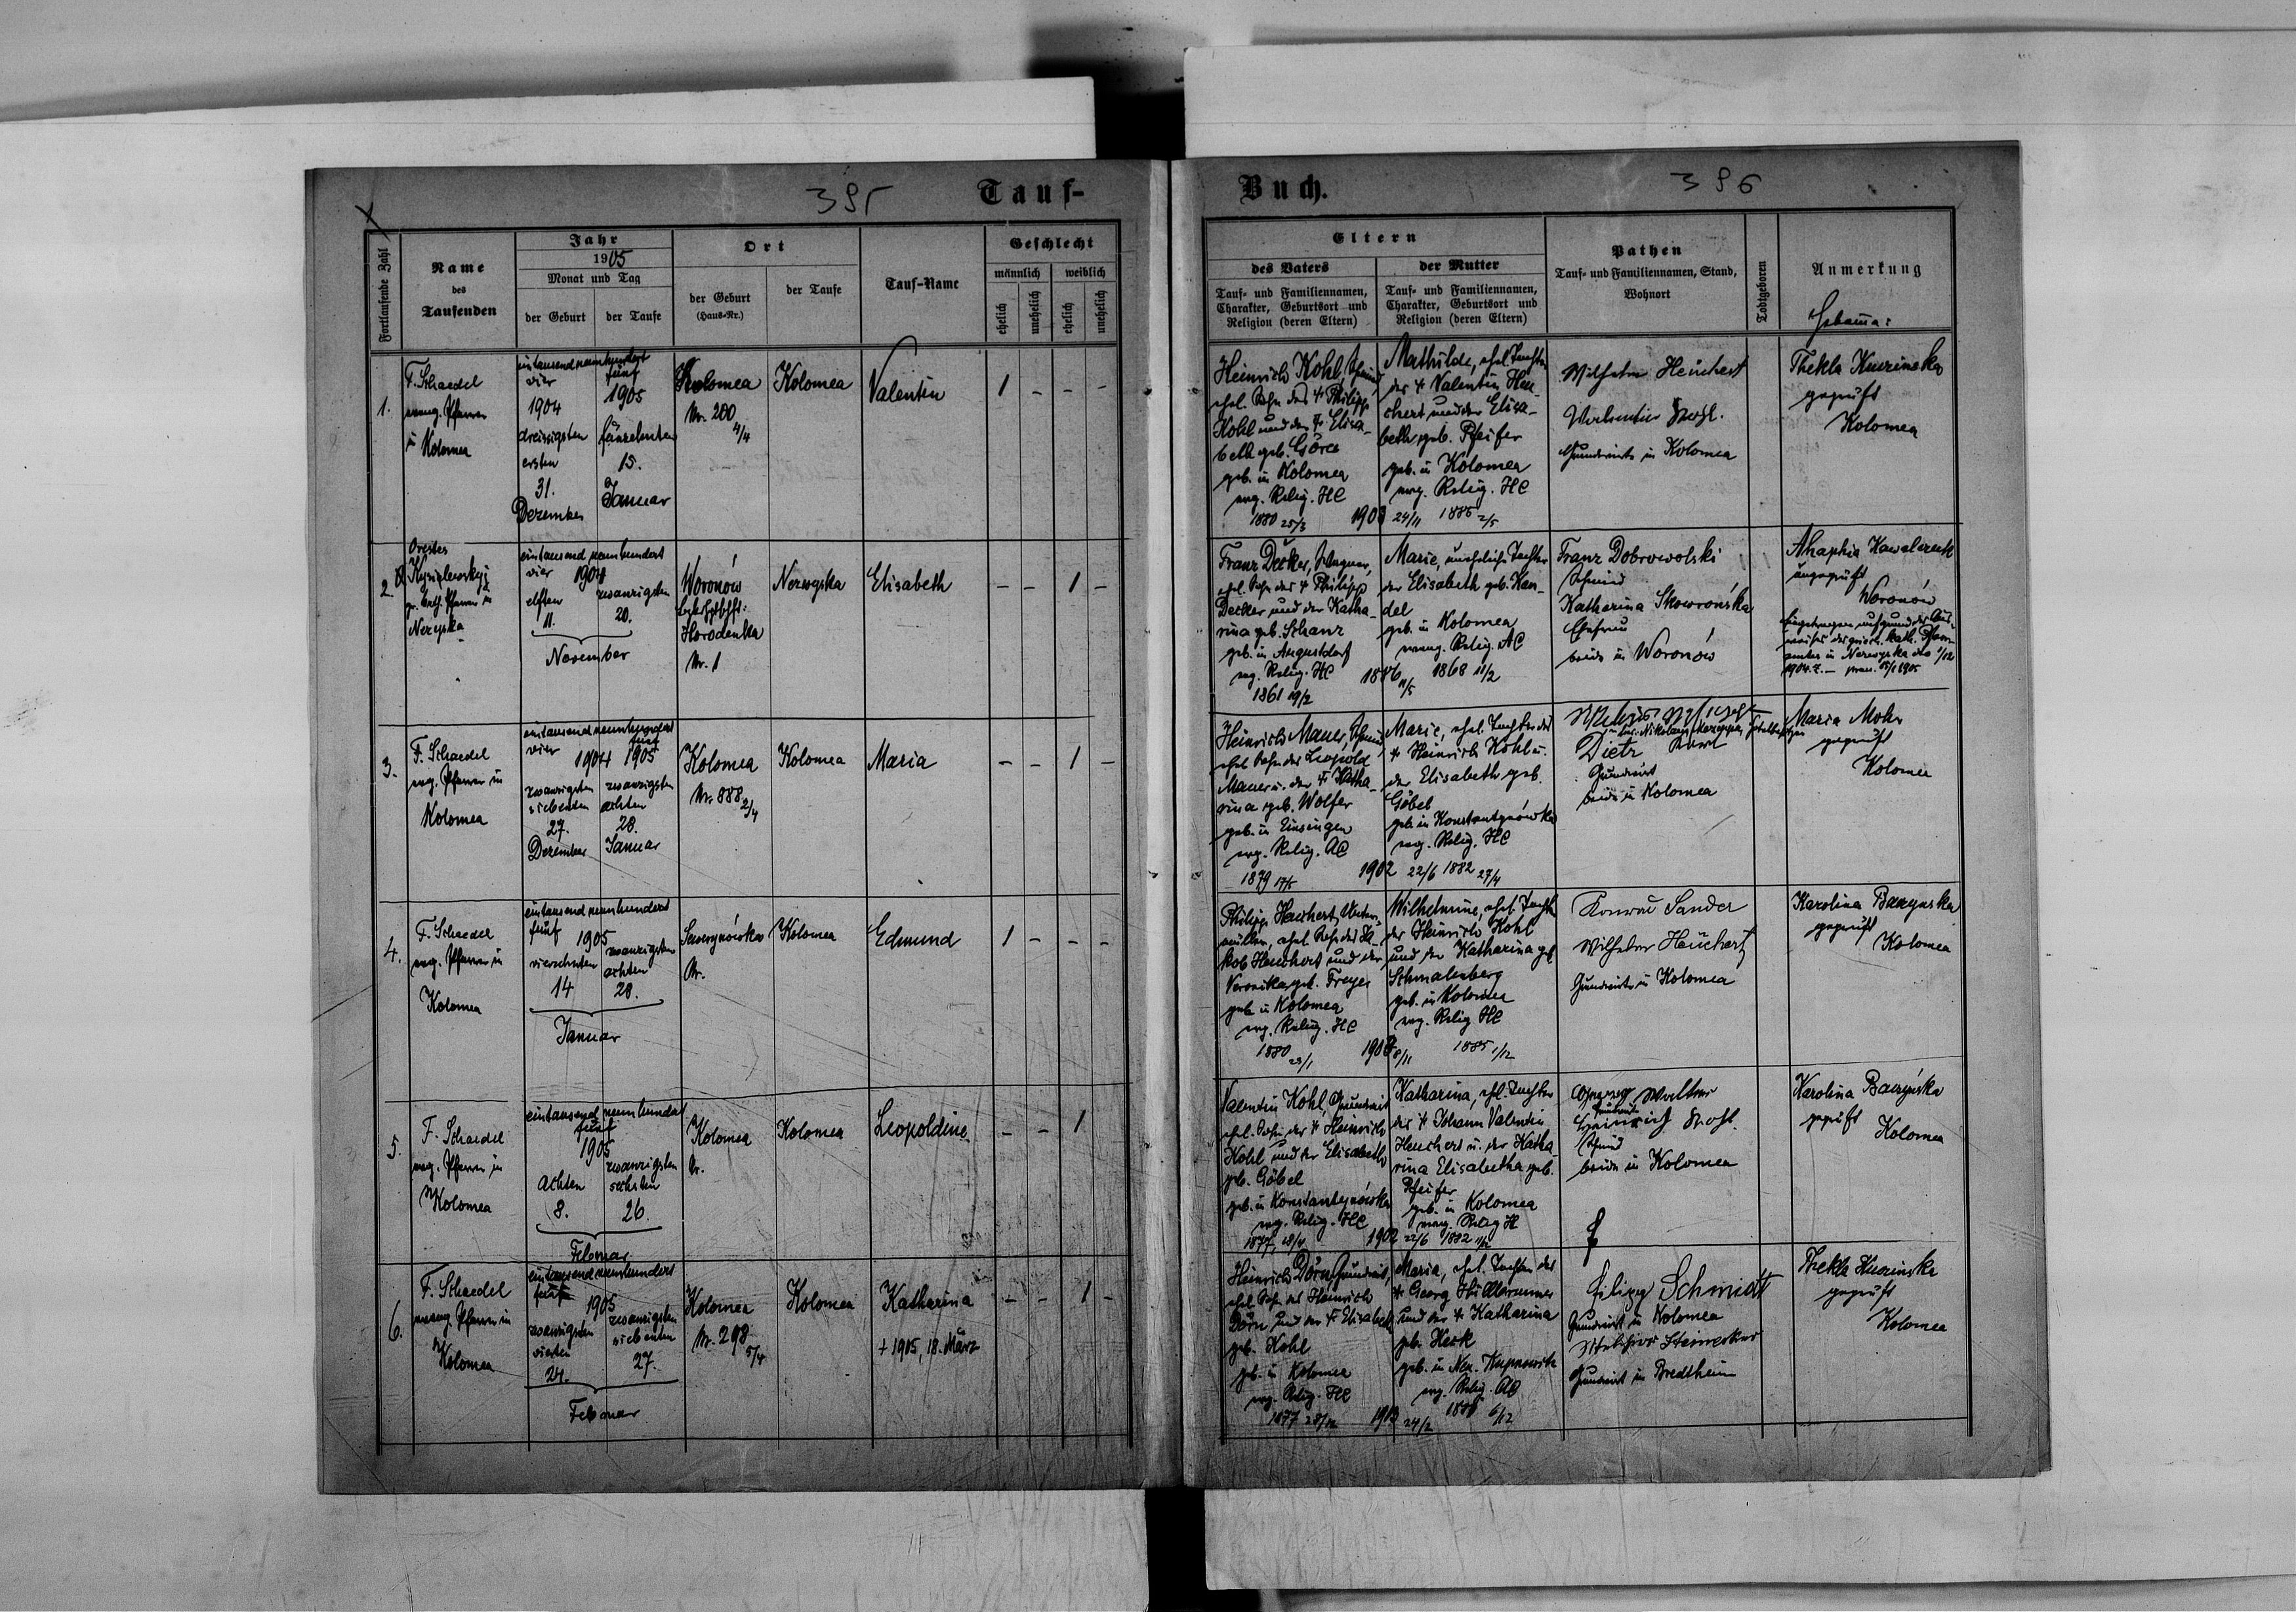 395
Tauf-
Fortlaufende Zahl
Name
des
Taufenden
Jahr
1905
Monat und Tag
der Geburt
der Taufe
Ort
der Geburt
(Haus-Nr.)
der Taufe
Tauf-Name
Geschlecht
männlich
weiblich
ehelich
unehelich
ehelich
unehelich
1.
F. Schaedel
evang. Pfarrer
in Kolomea
eintausendneunhundert
vier
1904
dreissigsten
ersten
31.
Dezember
fünf
1905
fünzehnten
15.
Januar
Kolomea
Nr. 200
4/4
Kolomea
Valentin
1 - - -
2.
Orestes
gr. kath. Pfarrer in
eintausend neunhundert
vier 1904
elften
11.
zwanzigsten
20.
November
Woronów
Horodenka
Nr. 1
Elisabeth
- - 1 -
3.
F. Schaedel
evg. Pfarrer in
Kolomea
eintausendneunhundert
vier
1904
zwanzigsten
siebenden
27.
Dezember
fünf
1905
zwanzigsten
achten
28.
Januar
Kolomea
Nr. 888
2/4
Kolomea
Maria
- - 1 -
4.
F. Schaedel
evg. Pfarrer in
Kolomea
eintausend neunhundert
fünf
1905
vierzehnten
14
zwanzigsten
achten
28.
Januar
Sewerynówka
Nr.
Kolomea
Edmund
1 - - -
5.
F. Schaedel
evg. Pfarrer in
Kolomea
eintausend neunhundert
fünf
1905
achten
8.
zwanzigsten
sechsten
26
Februar
Kolomea
Nr.
Kolomea
Leopoldine
- - 1
6.
F. Schaedel
evang. Pfarrer in
Kolomea
eintausend neunhundert
fünf
1905
zwanzigsten
vierten
24.
zwanzigsten
siebenten
27.
Februar
Kolomea
Nr. 298
5/4
Kolomea
Katharina
+ 1905, 18. März
- - 1 -
Buch.
396
Eltern
des Vaters
Tauf- und Familiennamen,
Charakter, Geburtsort und
Religion (deren Eltern)
der Mutter
Tauf- und Familiennamen,
Charakter, Geburtsort und
Religion (deren Eltern)
Pathen
Tauf- und Familiennamen, Stand,
Wohnort
Todtgeboren
Anmerkung
Hebamme:
Heinrich Kohl, Schmied
ehel. Sohn des + Philipp
Kohl und der + Elisa-
beth geb. Görce
geb. in Kolomea
evg. Relig. HC
1880 25/3
Mathilde, ehel. Tochter
der + Valentin Heu-
chert und der Elisa-
beth, geb. Pfeifer
geb. in Kolomea
evg. Relig. HC
24/11 1885 2/5
Wilhelm Heuchert
Valentin Kohl.
Grundwirte in Kolomea
Thekla
geprüft
Kolomea
Franz Decker, Wagner,
ehel. Sohn des + Philipp
Decker und der Katha-
rina geb. Schanz
geb. in Augustdorf
evg. Relig. HC
1861 19/2
Marie, uneheliche Tochter
der Elisabeth geb. Kan-
del
geb. in Kolomea
evang. Relig. AC
1886 11/5 1868 11/2
Franz Dobrowolski
Schmied
Katharina Skowrońska
Ehefrau
beide in Woronów
ungeprüft
Woronów
Heinrich Mauer, Schmied
ehel. Sohn des Leopold
Mauer u. der + Katha-
rina geb. Wolfer
geb. in Einsingen
evg. Relig. AC
1879 17/5
Marie, ehel. Tochter des
+ Heinrich Kohl u.
der Elisabeth geb.
Göbel
geb. in Konstantynówka
evg. Relig. HC
1902 22/6 1882 27/4
Dietz
Grundwirt
beide in Kolomea
Maria Mohr
geprüft
Kolomea
Philipp Heuchert,
ehel. Sohn des Ja-
kob Heuchert und der
Veronika geb. Freyer
geb. in Kolomea
evg. Relig. HC
1880 23/1
Wilhelmine, ehel. Tochter
der Heinrich Kohl
und der Katharina geb
Schmalenberg
geb. in Kolomea
evg. Relig HC
8/11 1885 1/12
Konrad Sander
Wilhelm Heuchert
Grundwirte in Kolomea
Karolina Baczyńska
geprüft
Kolomea
Valentin Kohl, Grundwirt
ehel. Sohn der + Heinrich
Kohl und der Elisabeth
geb. Göbel
geb. in Konstantynówka
evg. Relig. HC
1877, 18/4
Katharina, ehel. Tochter
der + Johann Valentin
Heuchert u. der Katha-
rina Elisabetha geb.
Pfeifer
geb. in Kolomea
evang. Relig H
1902 22/6 1882
Georg Walter
Heinrich Kohl.
Schmied
beide in Kolomea
Karolina Baczyńska
geprüft
Kolomea
Heinrich Dörn Grundwirt,
ehel. Sohn des Heinrich
Dörn und der + Elisabeth
geb. Kohl
geb. in Kolomea
evg. Relig. HC
1877 28/12
Maria, ehel. Tochter des
+ Georg Hüllbrunner
und der + Katharina
geb. Heck
geb. in Neu-Kupnowitz
evg. Relig. AC
24/2 6/12
Filipp Schmidt
Grundwirt in Kolomea
Grundwirt in Bredtheim
Thekla
geprüft
Kolomea